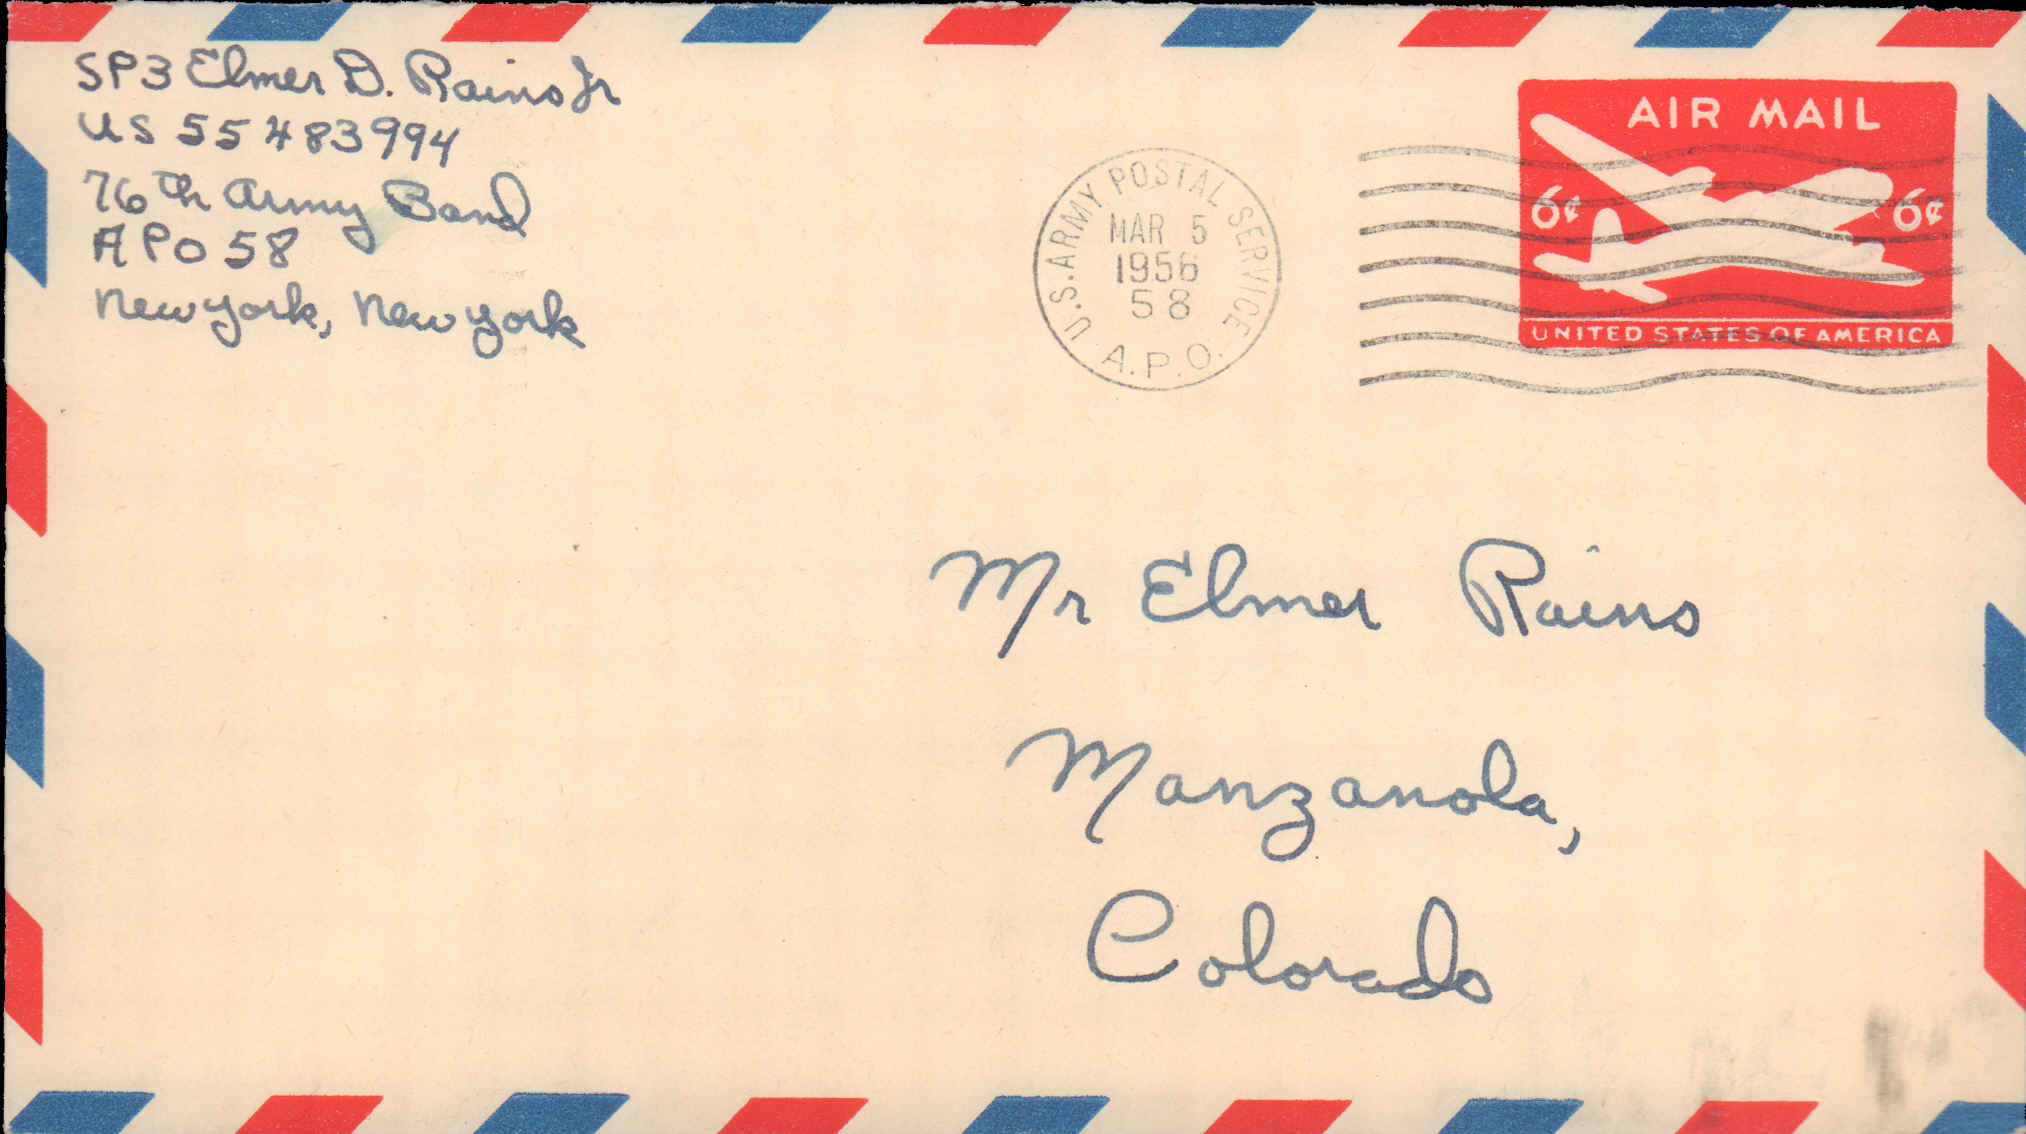 SP3 Elmer D. Rains Jr
US 55483994
76th Army Band
APO 58
New York, New York
U.S. ARMY POSTAL SERVICE
MAR 5
1956
58
A.P.O.
AIR MAIL
6¢ 6¢
UNITED STATES OF AMERICA
Mr Elmer Rains
Manzanola,
Colorado